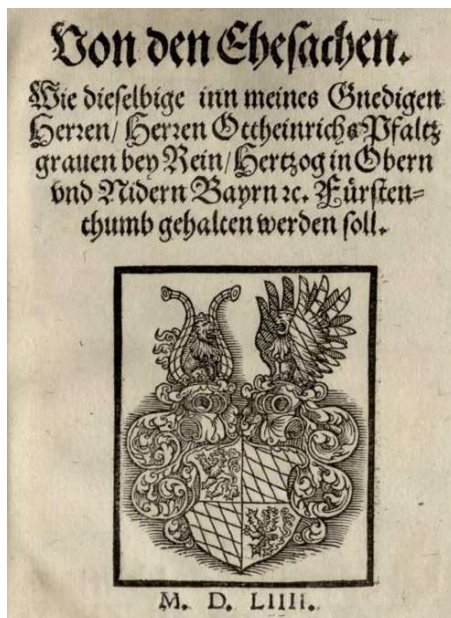 Von den Ehesachen.
Wie dieselbige inn meines Gnedigen
Herren/ Herren Ottheinrichs Pfaltz
grauen bey Rein/ Hertzog in Obern
vnd Nidern Bayrn ꝛc. Fürsten=
thumb gehalten werden soll.
M. D. LIIII.